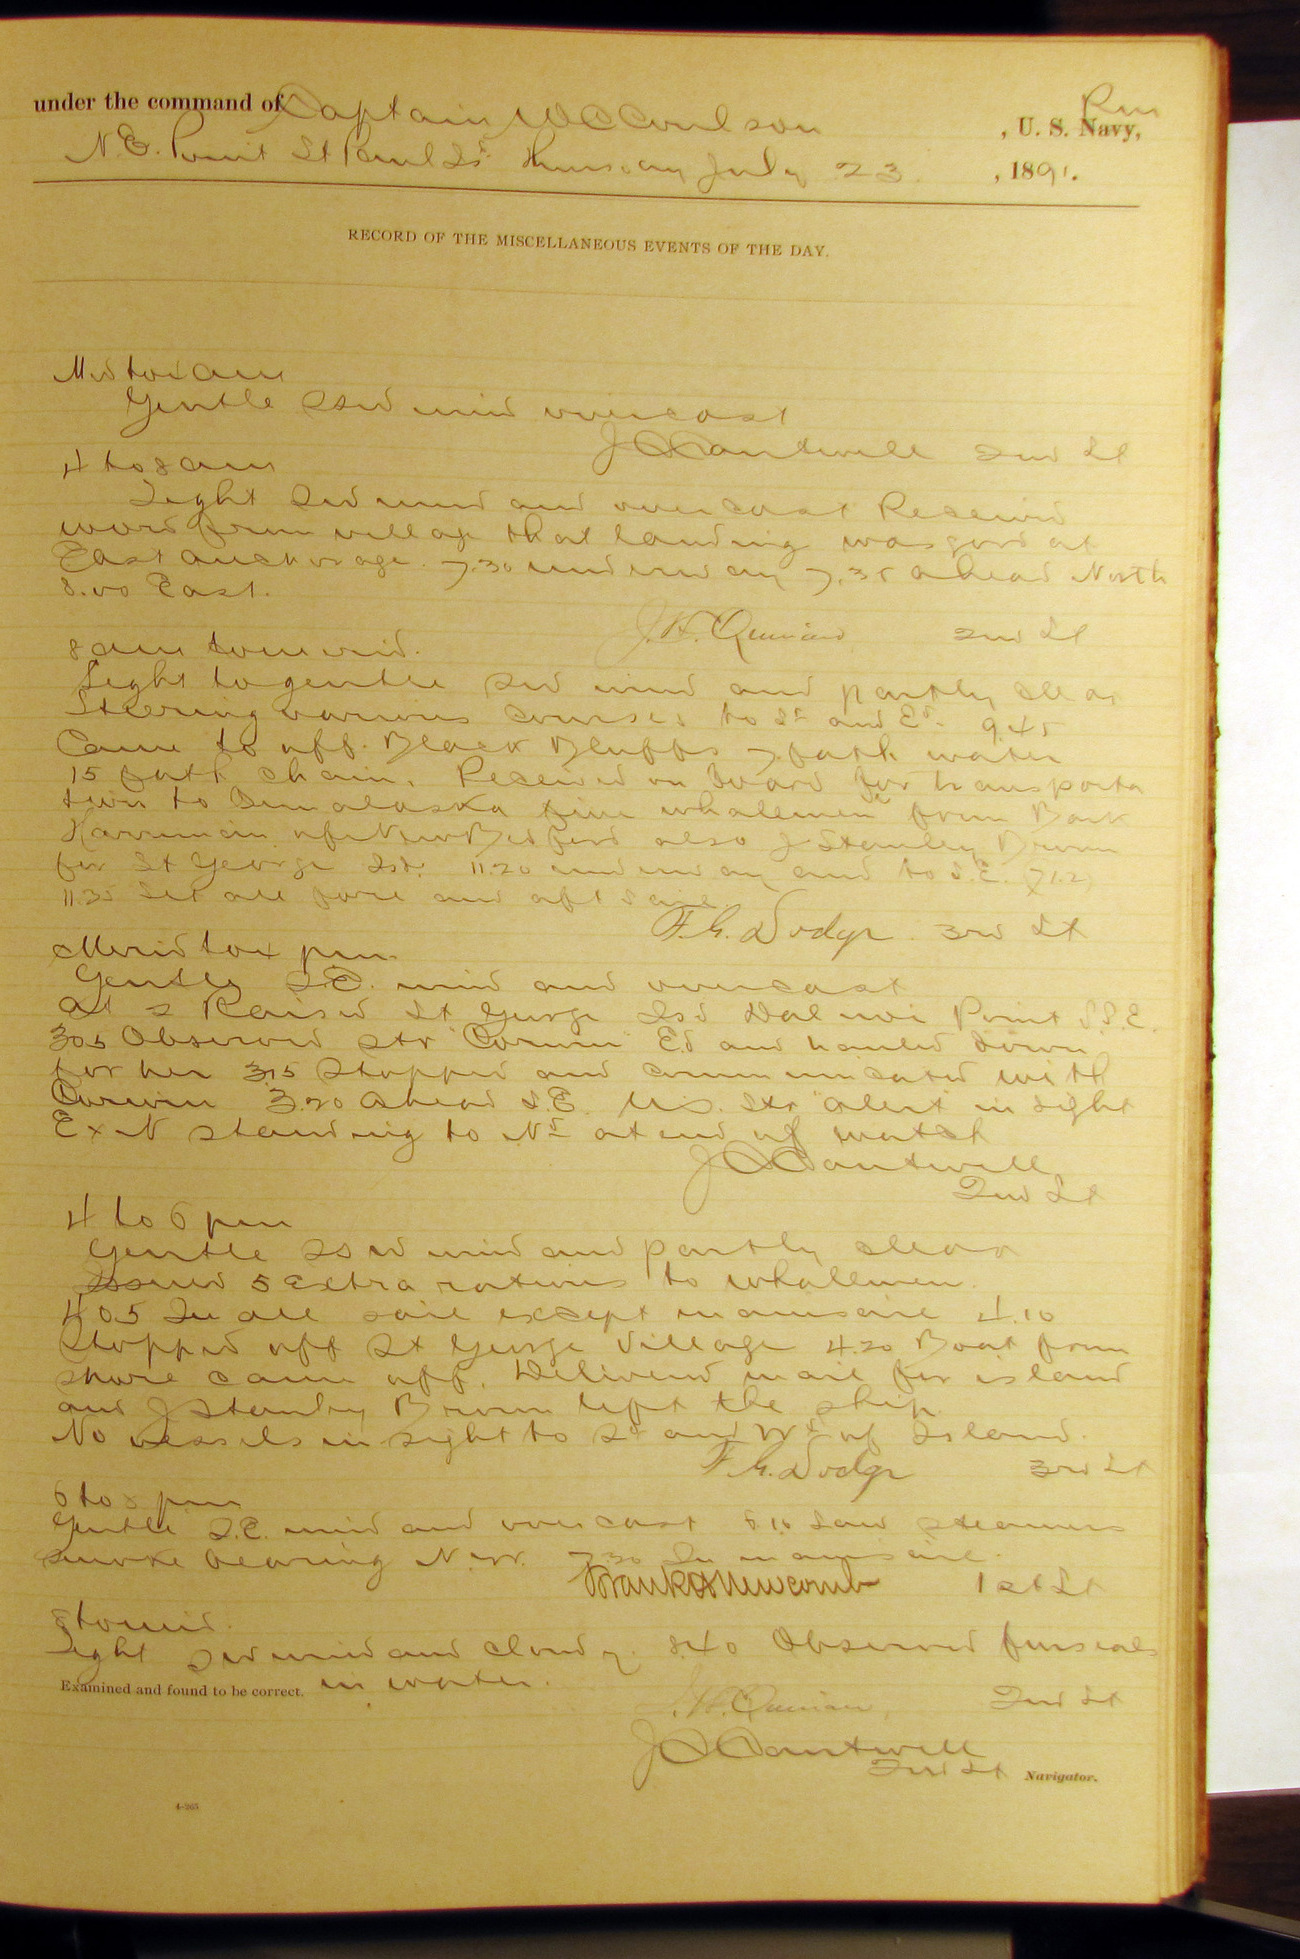 under the command of Captain W C Coulson , U. S. Rev Navy,
N.E. Point St Paul Isd. Thursday July 23 , 1891.
RECORD OF THE MISCELLANEOUS EVENTS OF THE DAY.
Mid to 4 am
Gentle SSWd wind overcast
J C Cantwell 2nd Lt
4 to 8 am
Light SWd wind and overcast Received
word from village that landing was good at
East anchorage. 7.30 underway 7.35 ahead North
8.00 East.
J.H. Quinan 2nd Lt
8 am to merid.
Light to gentle SWd wind and partly clear
Steering various courses to Sd and Ed. 9.45
Came to off Black Bluffs 7 fath water
15 fath chain. Received on board for transporta
tion to Ounalaska five whalemen from Bark
Harriman of New Bedford also J Stanley Brown
for St George Isd. 11.20 underway and to S.E. (71.2)
11.35 Set all fore and aft sail.
F.G. Dodge 3rd Lt
Merid to 4 pm
Gentle S.E. wind and overcast
At 2 Raised St George Isd Dalnoi Point S.S.E.
3.05 Observed str "Corwin" Ed and hauled down
for her 3.15 Stopped and communicated with
Corwin 3.20 ahead S.E. U.S. Str "Alert" in sight
E x N standing to Nd at end of watch
J C Cantwell
2nd Lt
4 to 6 pm
Gentle SSWd wind and partly clear
Issued 5 extra rations to whalemen.
4.05 In all sail except mainsail 4.10
Stopped off St George Village 4.20 Boat from
shore came off. Delivered mail for island
and J Stanley Brown left the ship.
No vessels in sight to Sd and Wd of Island.
F.G. Dodge 3rd Lt
6 to 8 pm
Gentle S.E. wind and overcast 6.10 Saw steamers
smoke bearing N.W. 7.30 In mainsail.
Frank H Newcomb 1st Lt
8 to mid.
Light SWd wind and cloudy. 8.40 Observed fur seals
Examined and found to be correct. in water.
J.H. Quinan, 2nd Lt
J C Cantwell
2nd Lt Navigator.
4-265